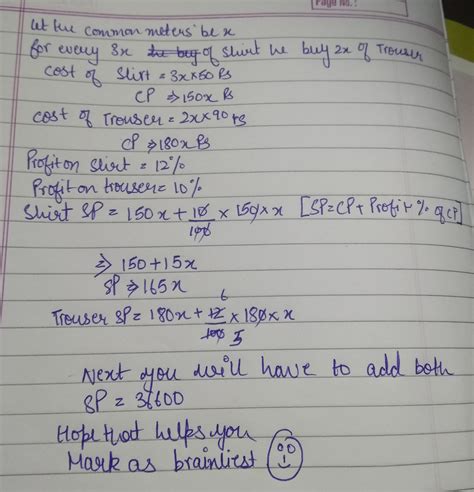 Page No.:
let the common meters be x
for every 3x the buy of shirt he buy 2x of Trouser
cost of Slirt = 3x×50 Rs
CP ⇒ 150x Rs
cost of Trouser = 2x×90 rs
CP ⇒ 180x Rs
Profit on shirt = 12%
Profit on trouser = 10%
Shirt SP = 150x + 10/100 × 150 × x [SP = CP + Profit % of CP]
⇒ 150 + 15x
SP ⇒ 165x
Trouser SP = 180x + 12/100 × 180 × x
6
5
Next you will have to add both
SP = 36600
Hope that helps you
Mark as brainliest